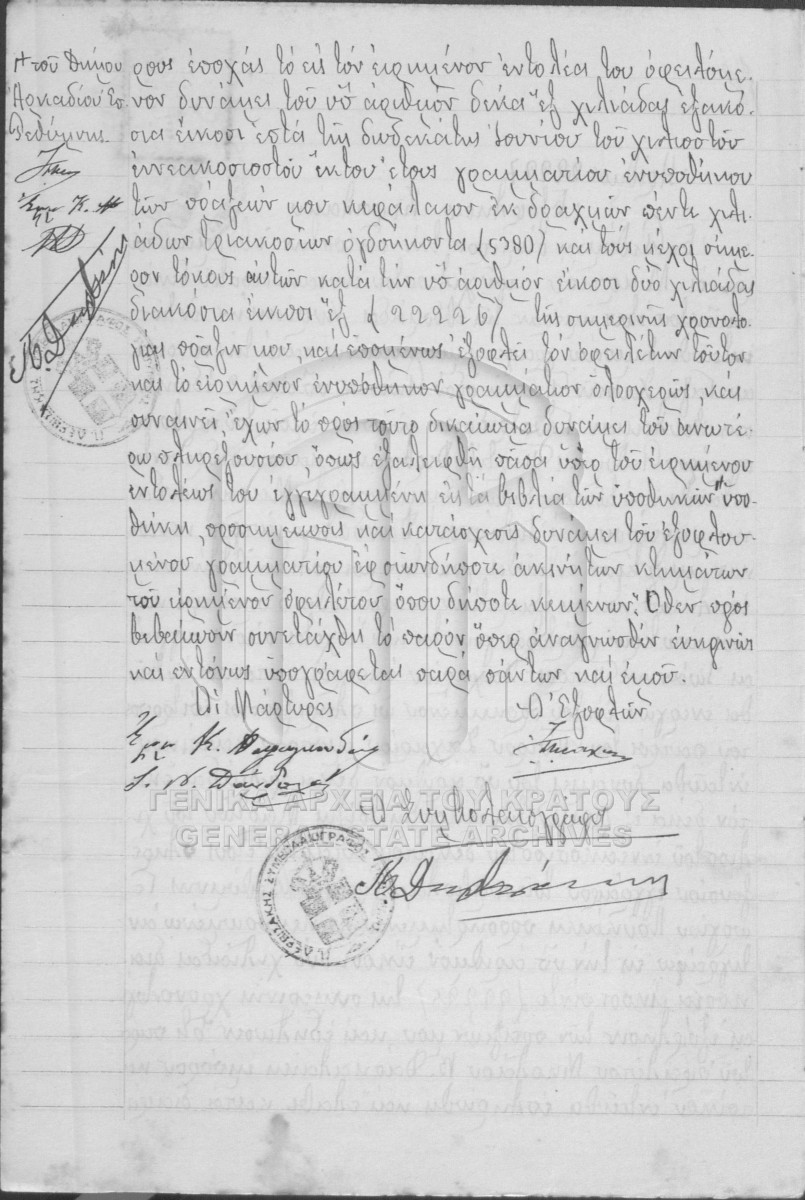 τοῦ Δήμου
Ἀρκαδίου
Ρεθύμνης.
ρους ἐποχάς τό εἰς τόν εἰρημένον ἐντολέα του ὀφειλόμε-
νον δυνάμει τοῦ ὑπ' ἀριθμόν δέκα ἕξ χιλιάδας ἑξακό-
σια εἴκοσι ἑπτά τῆς δωδεκάτης Ἰουνίου τοῦ χιλιοστοῦ
ἐννεακοσιοστοῦ ἕκτου ἔτους γραμματίου ἐνυποθήκου
τῶν πράξεών μου κεφάλαιον ἐκ δραχμῶν πέντε χιλι-
άδων τριακοσίων ὀγδοήκοντα (5380) καί τούς μέχρι σήμε-
ρον τόκους αὐτῶν κατά τήν ὑπ' ἀριθμόν εἴκοσι δύο χιλιάδας
διακόσια εἴκοσι ἕξ (22226) τῆς σημερινῆς χρονολο-
γίας πρᾶξιν μου, καί ἑπομένως ἐξοφλεῖ τόν ὀφειλέτην τοῦτον
καί τό εἰρημένον ἐνυπόθηκον γραμμάτιον ὁλοσχερῶς, καί
συναινεῖ, ἔχων τό πρός τοῦτο δικαίωμα δυνάμει τοῦ ἀνωτέ-
ρω πληρεξουσίου, ὅπως ἐξαλειφθῇ πᾶσα ὑπέρ τοῦ εἰρημένου
ἐντολέως του ἐγγεγραμμένη εἰς τά βιβλία τῶν ὑποθηκῶν ὑπο-
θήκη, προσημείωσις καί κατάσχεσις δυνάμει τοῦ ἐξοφλου-
μένου γραμματίου ἐφ' οἱωνδήποτε ἀκινήτων κτημάτων
τοῦ εἰρημένου ὀφειλέτου ὅπου δήποτε κειμένων. Ὅθεν πρός
βεβαίωσιν συνετάχθη τό παρόν ὅπερ ἀναγνωσθέν εὐκρινῶς
καί ἐντόνως ὑπογράφεται παρά πάντων καί ἐμοῦ.
Οἱ Μάρτυρες
Ὁ Ἐξοφλῶν
Ὁ Συμβολαιογράφος
ΓΕΝΙΚΑ ΑΡΧΕΙΑ ΤΟΥ ΚΡΑΤΟΥΣ
GENERAL STATE ARCHIVES